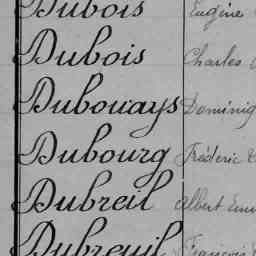 Dubois Eugène
Dubois Charles
Dubouays
Dubourg Frédéric
Dubreil Albert
Dubreuil François